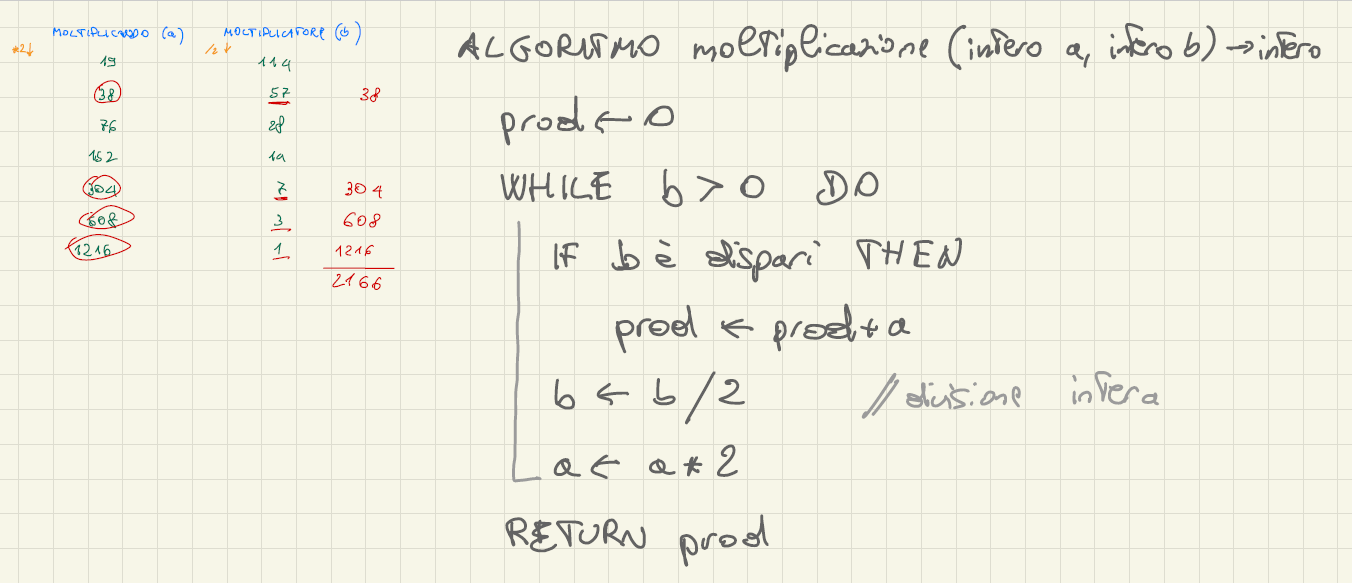 MOLTIPLICANDO (a) MOLTIPLICATORE (b)
*2↓ /2 ↓
19 114
38 57 38
76 28
152 14
304 7 304
608 3 608
1216 1 1216
2166
ALGORITMO moltiplicazione (intero a, intero b) → intero
prod ← 0
WHILE b > 0 DO
IF b è dispari THEN
prod ← prod + a
b ← b / 2 // divisione intera
a ← a * 2
RETURN prod